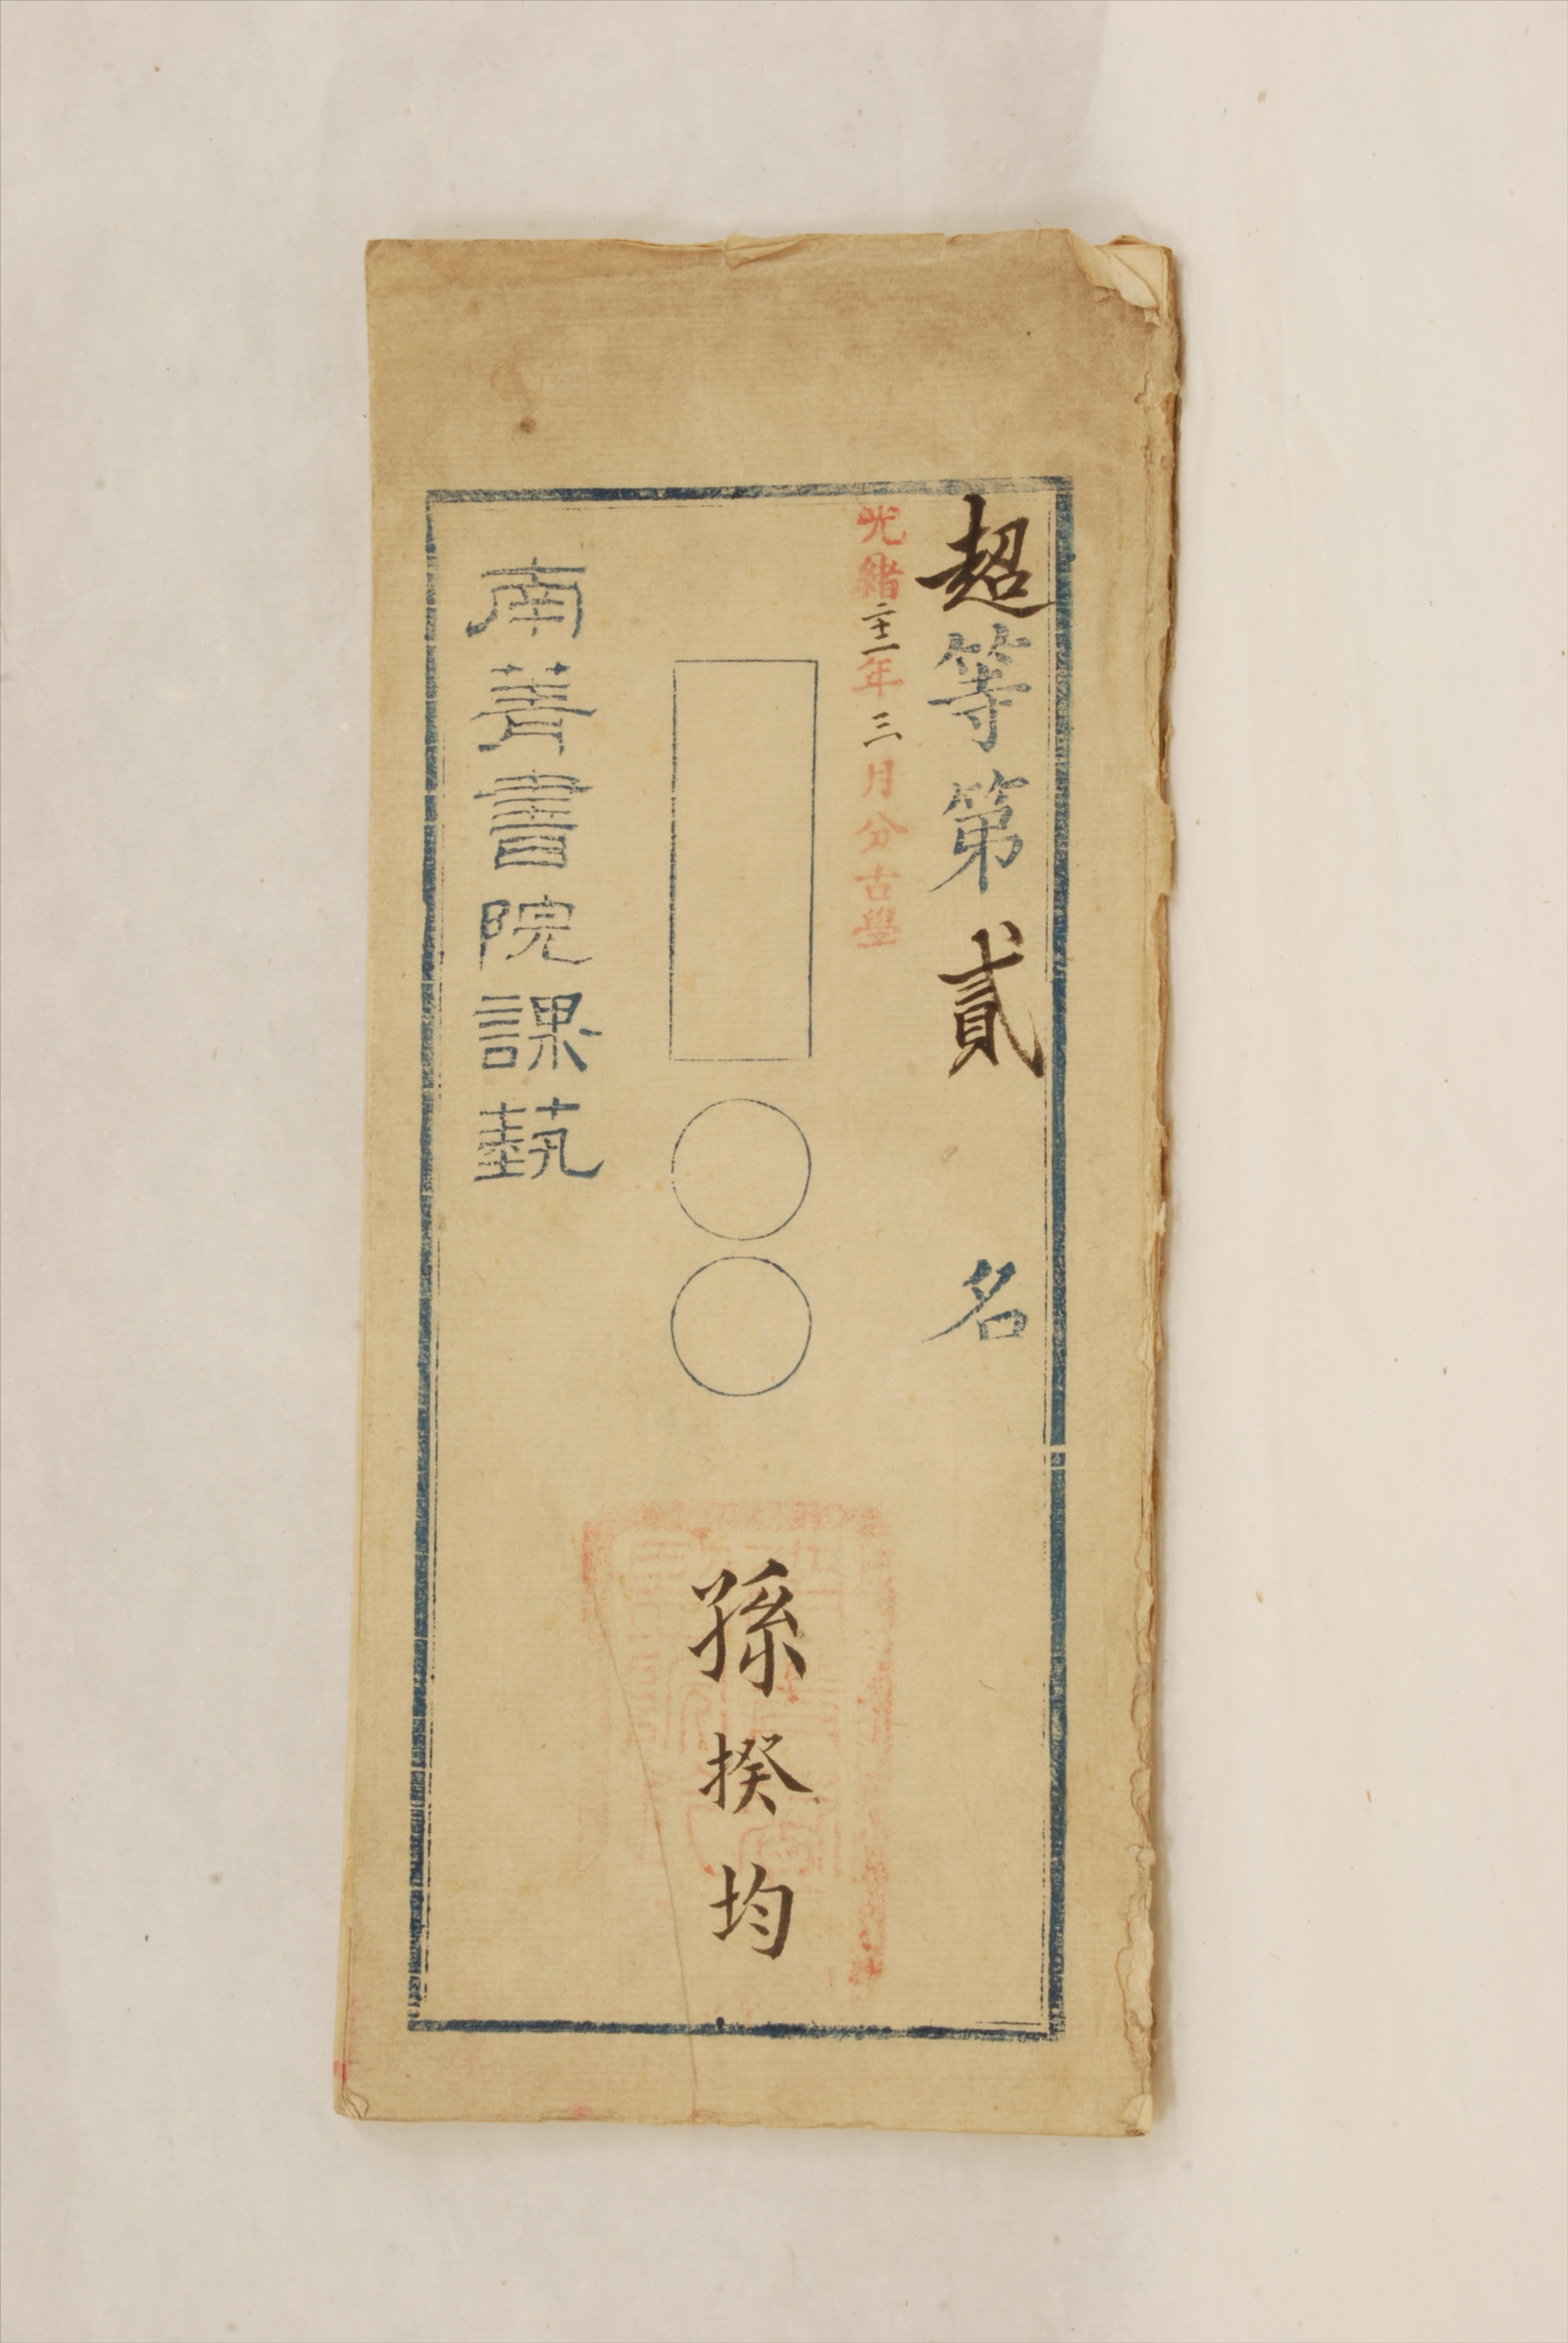 超等第貳名
光緒二十一年三月分古學
孫揆均
南菁書院課藝